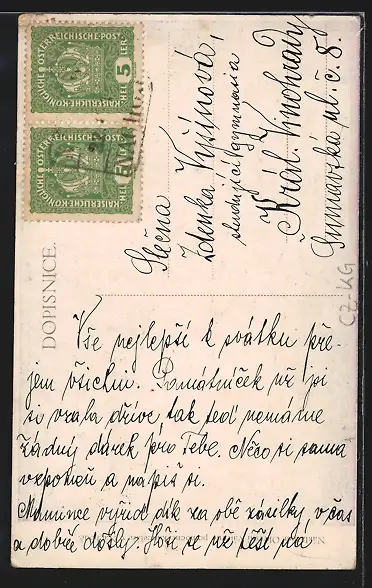 KAISERLICHE-KÖNIGLICHE ÖSTERREICHISCHE-POST
5 HELLER
KAISERLICHE-KÖNIGLICHE ÖSTERREICHISCHE-POST
5 HELLER
DOPISNICE.
Slečna
Zdenka Vyšínová,
studující gymnasia
Král. Vinohrady
Šumavská ul. č. 8.
CZ-KG
Vše nejlepší k svátku pře-
jem všichni. Památníček už jsi
si vzala dříve, tak teď nemáme
žádný dárek pro Tebe. Něco si sama
vzpomeň a napiš si.
Mamince vyřiď dík za obě zásilky, v čas
a dobře došly. Hoši se už těší na